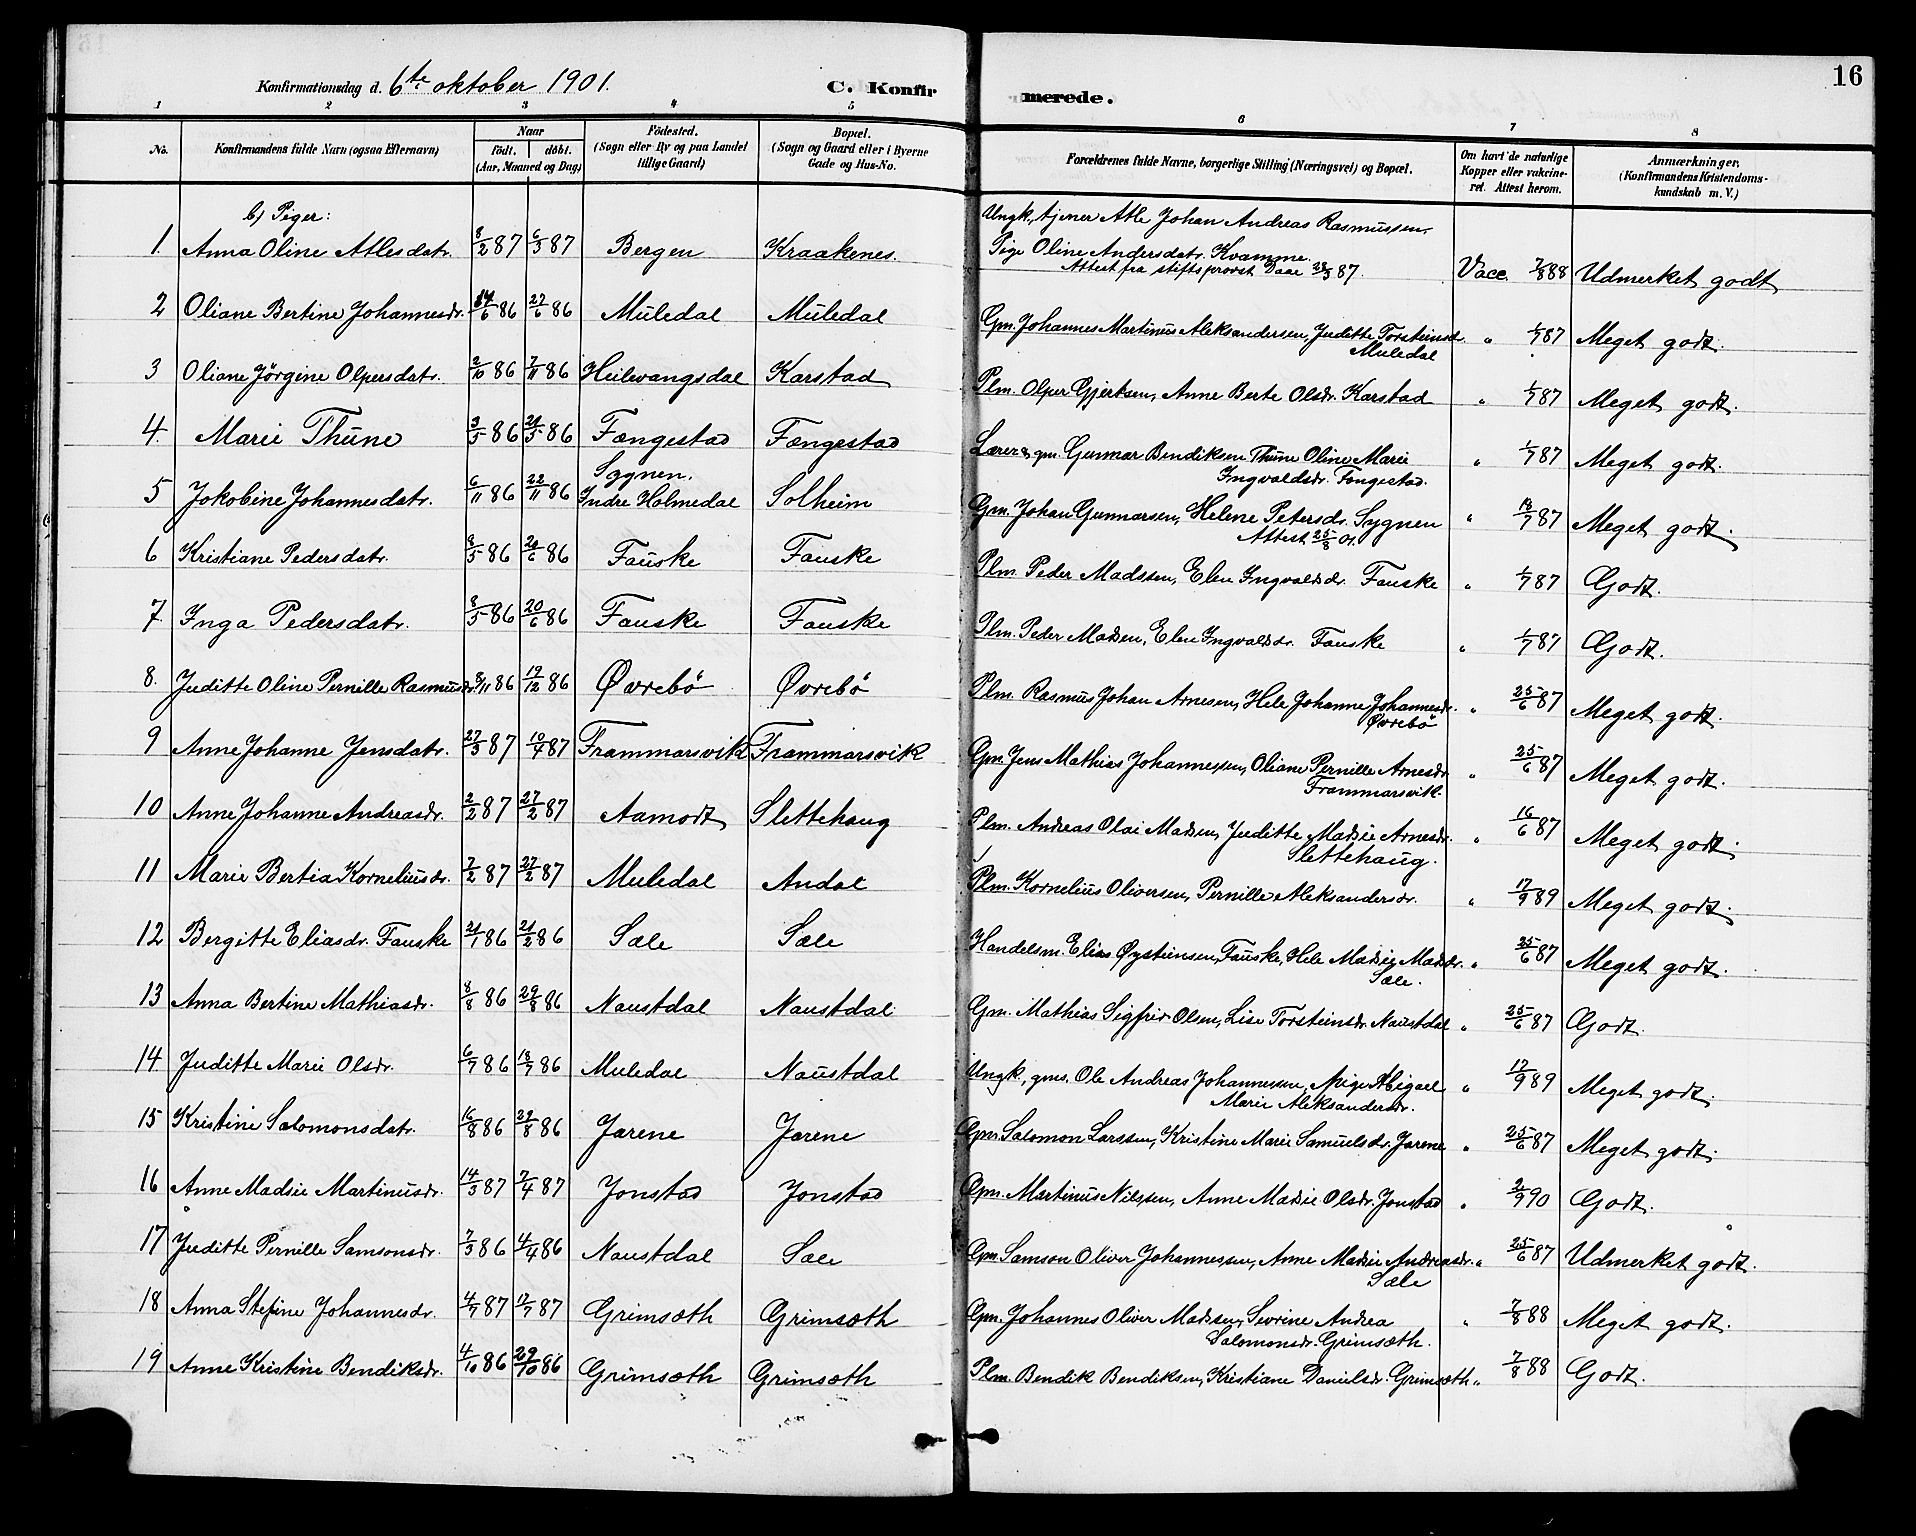 16
Konfirmationsdag d. 6te oktober 1901. C. Konfirmerede.
1 2 3 4 5 6 7 8
No. Konfirmandens fulde Navn (ogsaa Efternavn) Naar födt. döbt. (Aar, Maaned og Dag) Födested. (Sogn eller By og paa Landet tillige Gaard) Bopæl. (Sogn og Gaard eller i Byerne Gade og Hus-No. Forældrenes fulde Navne, borgerlige Stilling (Næringsvei) og Bopæl. Om havt de naturlige Kopper eller vakcineret. Attest herom. Anmærkninger, (Konfirmandens Kristendomskundskab m. V.)
b) Piger:
1. Anna Oline Atlesdatr. 8/2 87 6/3 87 Bergen Kraakenes. Ungk., tjener Atle Johan Andreas Rasmussen, Pige Oline Andersdatr. Kvamme. Attest fra stiftsprovst Daae 28/3 87. Vacc. 7/8 88 Udmerket godt
2 Oliane Bertine Johannesdr. 14/6 86 27/6 86 Muledal Muledal Gm. Johannes Martinus Aleksandersen, Juditte Torsteinsd. Muledal " 1/7 87 Meget godt.
3 Oliane Jörgine Olpersdatr. 2/10 86 7/11 86 Heilevangsdal Karstad Plm. Olper Gjertsen, Anne Berte Olsdr. Karstad " 1/7 87 Meget godt.
4. Marie Thune 3/5 86 21/5 86 Fængestad Fængestad Lærer & gm. Gunnar Bendiksen Thune Oline Marie Ingvaldsdr. Fængestad. " 1/7 87 Meget godt.
5 Jokobine Johannesdatr. 6/11 86 22/11 86 Sygnen, Indre Holmedal Solheim Gm. Johan Gunnarsen, Helene Petersdr. Sygnen Attest 25/8 01. " 18/7 87 Meget godt.
6 Kristiane Pedersdatr. 8/5 86 20/6 86 Fauske Fauske Plm. Peder Madssen, Elen Ingvaldsdr. Fauske " 1/7 87 Godt.
7. Inga Pedersdatr. 8/5 86 20/6 86 Fauske Fauske Plm. Peder Madsen, Elen Ingvaldsdr. Fauske " 1/7 87 Godt.
8. Juditte Oline Pernille Rasmusdr. 8/11 86 19/12 86 Øvrebö Øvrebö Plm. Rasmus Johan Arnesen, Hele Johanne Johannesdr. Øvrebö " 25/6 87 Meget godt.
9 Anne Johanne Jensdatr. 27/3 87 10/4 87 Frammarsvik Frammarsvik Gm. Jens Mathias Johannessen, Oliane Pernille Arnesdr. Frammarsvik. " 25/6 87 Meget godt.
10 Anne Johanne Andreasdr. 2/2 87 27/2 87 Aamodt Slettehaug Plm. Andreas Olai Madsen, Juditte Madsie Arnesdr. Slettehaug. " 16/6 87 Meget godt.
11 Marie Bertia Kornelius dr. 7/2 87 27/2 87 Muledal Andal Plm. Kornelius Oliversen, Pernille Aleksandersdr. " 17/9 89 Meget godt.
12 Bergitte Eliasdr. Fauske 21/1 86 21/2 86 Sæle Sæle Handelsm. Elias Øysteinsen, Fauske, Hele Madsie Madsdr. Sæle. " 25/6 87 Meget godt.
13 Anna Bertine Mathiasdr. 8/8 86 29/8 86 Naustdal Naustdal Gm. Mathias Sigfrid Olsen, Lise Torsteinsdr. Naustdal " 25/6 87 Godt.
14 Juditte Marie Olsdr. 6/7 86 18/7 86 Muledal Naustdal Ungk., gms. Ole Andreas Johannessen, Pige Abigael Marie Aleksandersdr. " 17/9 89 Meget godt.
15 Kristine Salomonsdatr. 16/8 86 29/8 86 Jarene Jarene Gm. Salomon Larssen, Kristine Marie Samuelsdr. Jarene " 25/6 87 Meget godt.
16 Anne Madsie Martinusdr. 14/3 87 7/4 87 Jonstad Jonstad Gm. Martinus Nilssen, Anne Madsie Olsdr. Jonstad " 2/9 90 Godt.
17 Juditte Pernille Samsonsdr. 7/3 86 4/4 86 Naustdal Sæle Gm. Samson Oliver Johannessen, Anne Madsie Andreasdr. Sæle " 25/6 87 Udmerket godt.
18 Anna Stefine Johannesdr. 4/7 87 17/7 87 Grimsæth Grimsæth Gm. Johannes Oliver Madsen, Sevrine Andrea Salomonsdr. Grimsæth. " 7/8 88 Meget godt.
19 Anne Kristine Bendiksdr. 4/10 86 29/10 86 Grimsæth Grimsæth Plm. Bendik Bendiksen, Kristiane Danielsdr. Grimsæth " 7/8 88 Godt.